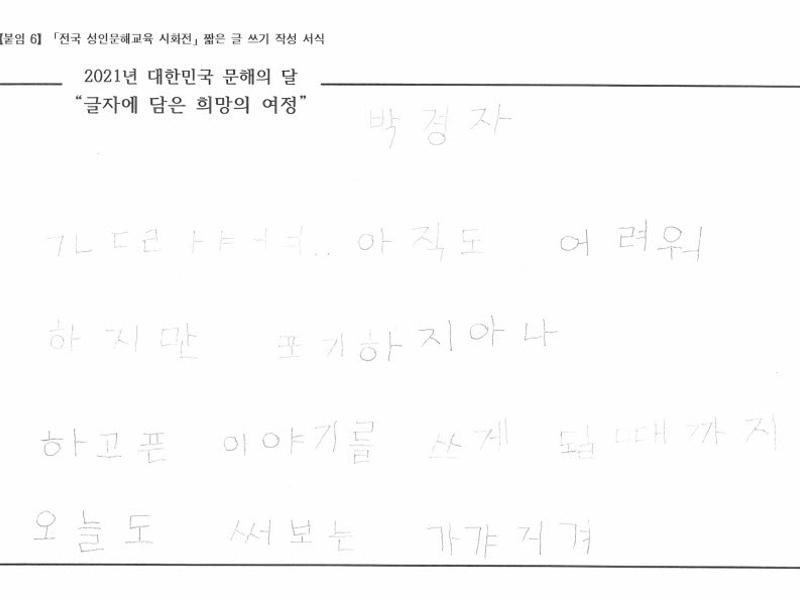 【붙임 6】 「전국 성인문해교육 시화전」 짧은 글 쓰기 작성 서식
2021년 대한민국 문해의 달
“글자에 담은 희망의 여정”
박경자
ㄱㄴ ㄷㄹ ㅏㅑㅓㅕ.. 아직도 어려워
하지만 포기하지아나
하고픈 이야기를 쓰게 됨때까지
오늘도 써보는 가갸거겨